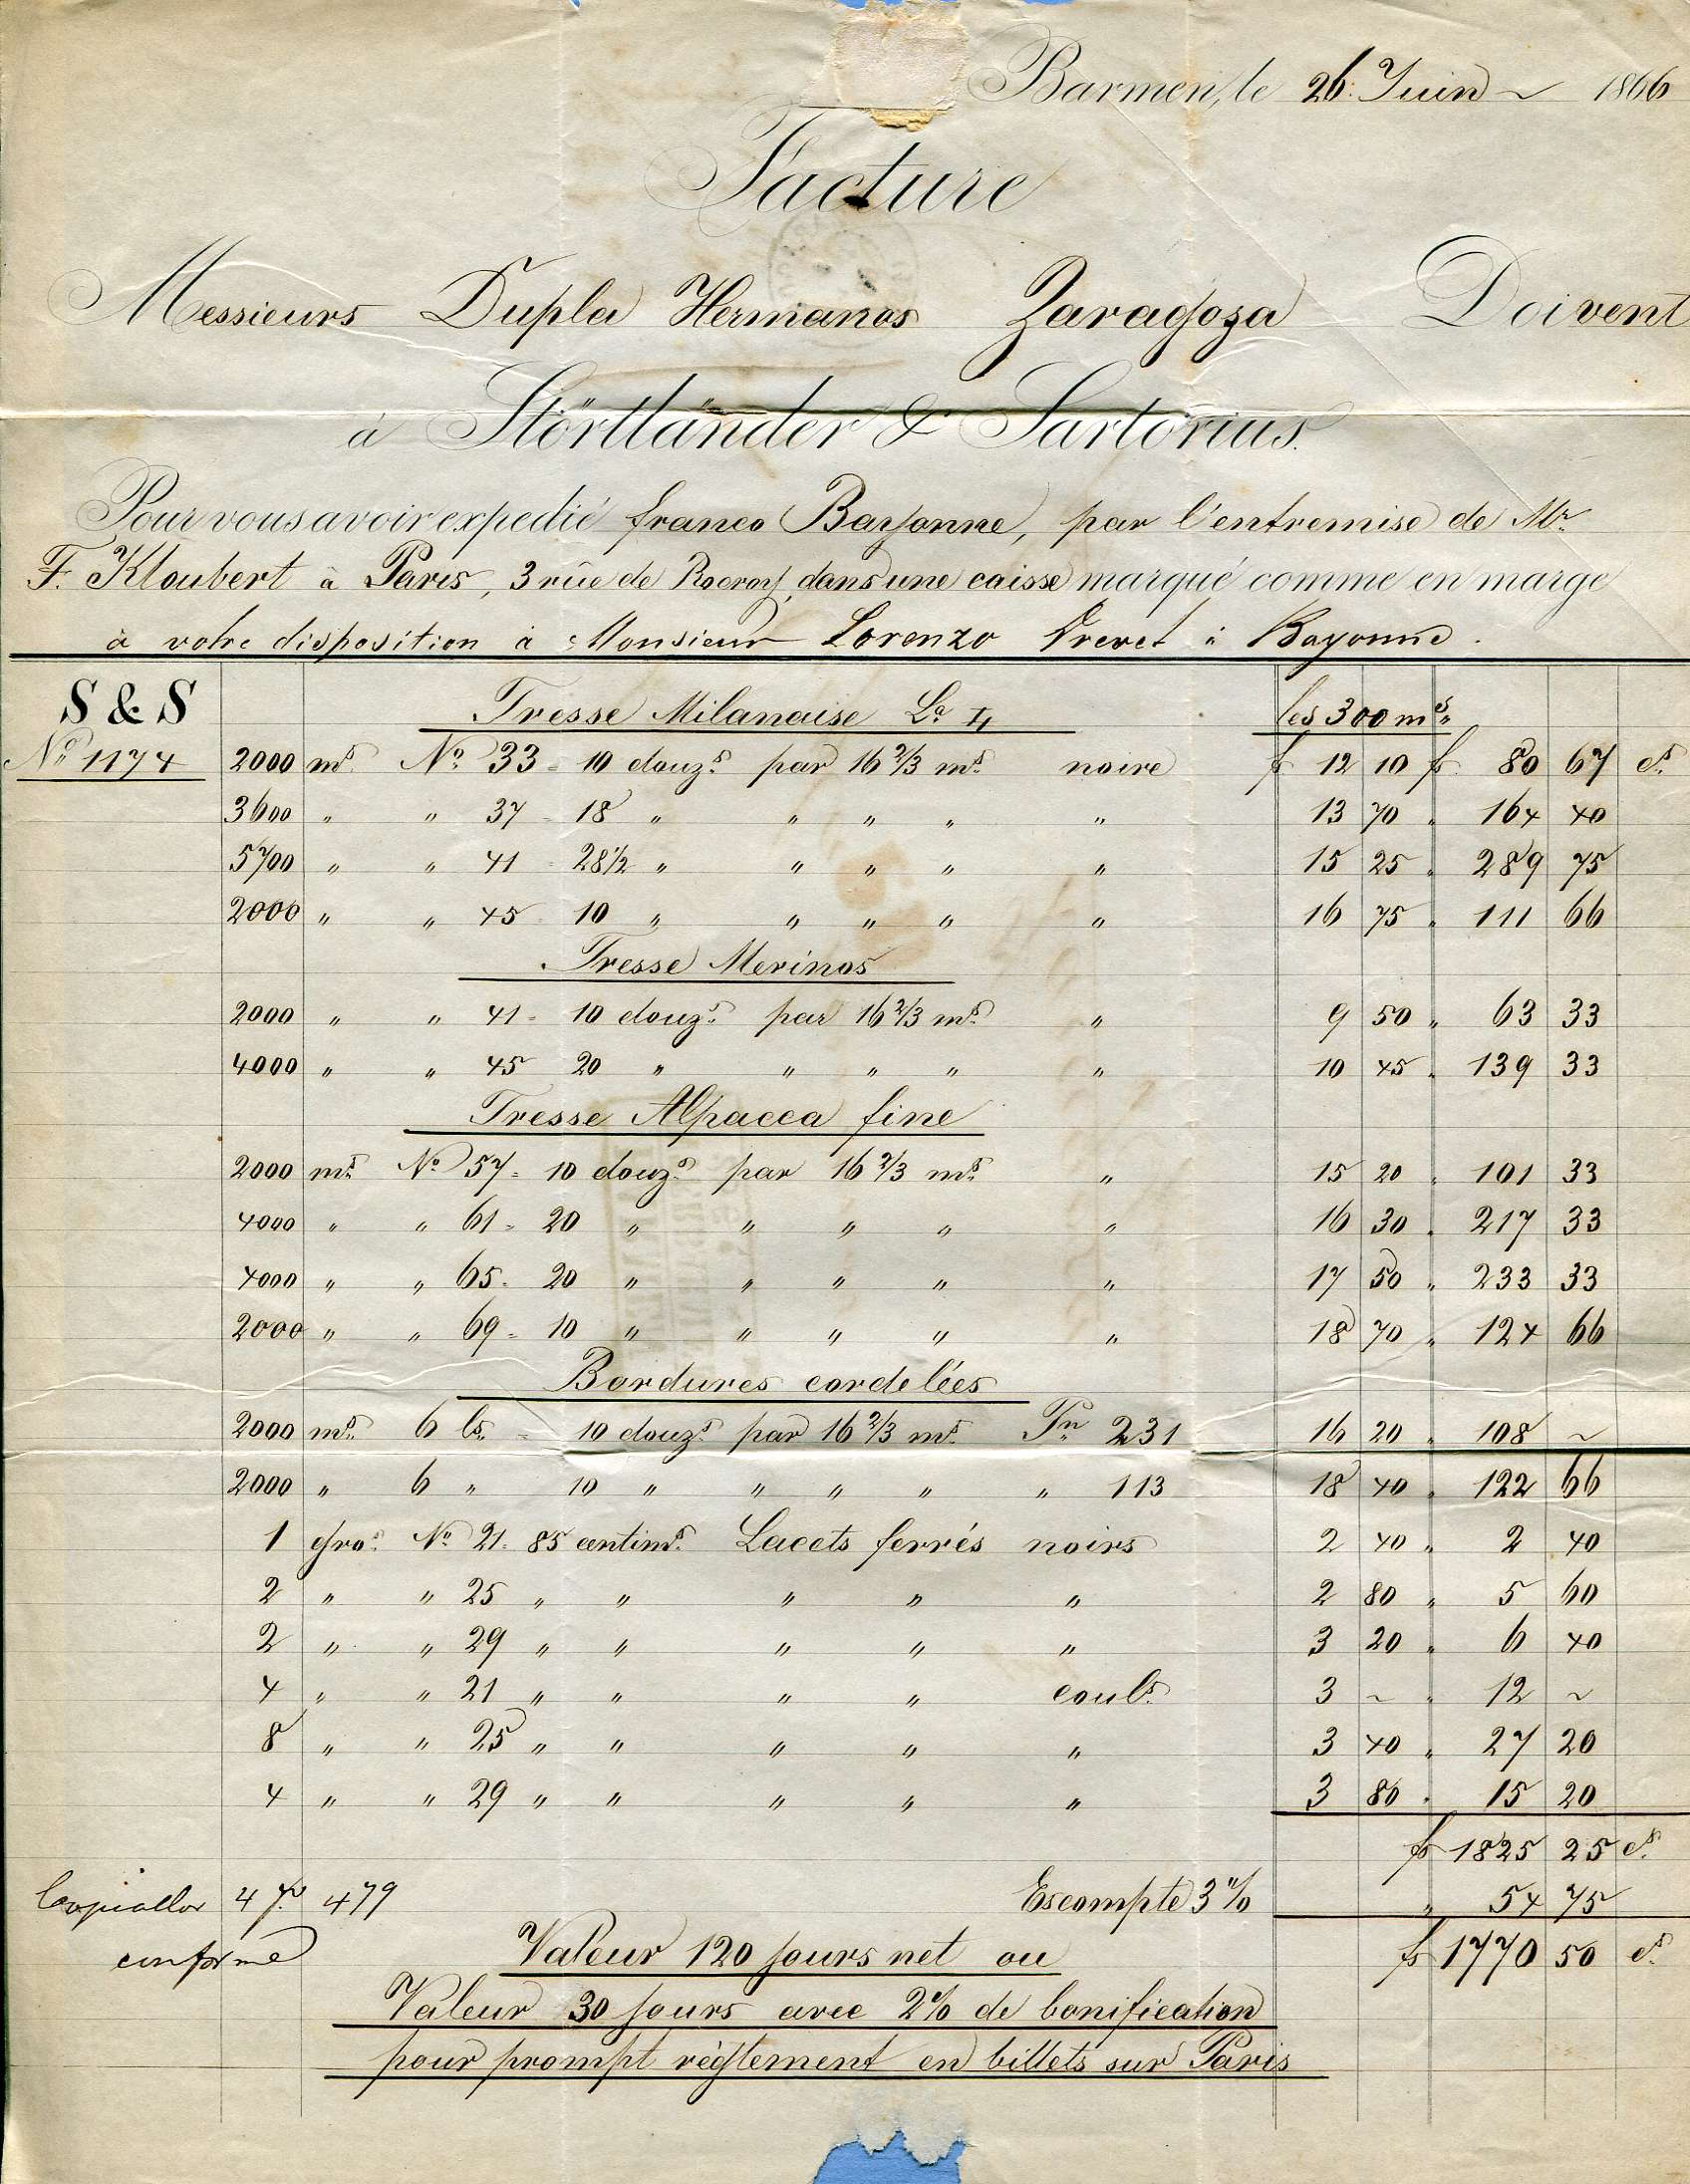 Barmen, le 26. Juin ~ 1866
Facture
Messieurs Dupla Hermanos Zaragoza Doivent
à Störtländer & Sartorius.
Pour vous avoir expedié franco Bayonne, par l'entremise de Mr.
F. Kloubert à Paris, 3 rûe de Rocroy, dans une caisse marqué comme en marge
à votre disposition à Monsieur Lorenzo à Bayonne.
S & S Tresse Milanaise La. L les 300 ms.
No. 1174 2000 ms. No. 33 = 10 douzs. par 16 2/3 ms. noire f 12 10 fs. 80 67 cs.
3600 " " 37 = 18 " " " " " 13 70 " 164 40
5700 " " 41 = 28 1/2 " " " " " 15 25 " 289 75
2000 " " 45 = 10 " " " " " 16 75 " 111 66
Tresse Merinos
2000 " " 41 = 10 douzs. par 16 2/3 ms. " 9 50 " 63 33
4000 " " 45 20 " " " " " 10 45 " 139 33
Tresse Alpacca fine
2000 ms. No. 57 = 10 douzs. par 16 2/3 ms. " 15 20 " 101 33
4000 " " 61 = 20 " " " " " 16 30 " 217 33
4000 " " 65 = 20 " " " " " 17 50 " 233 33
2000 " " 69 = 10 " " " " " 18 70 " 124 66
Bordures cordelées
2000 ms. 6 ls. = 10 douzs. par 16 2/3 ms. Pn 231 16 20 " 108 ~
2000 " 6 " 10 " " " " " 113 18 40 " 122 66
1 gros. No. 21 = 85 centims. Lacets ferrés noirs 2 40 " 2 40
2 " " 25 " " " " " 2 80 " 5 60
2 " " 29 " " " " " 3 20 " 6 40
4 " " 21 " " " " couls. 3 ~ " 12 ~
8 " " 25 " " " " " 3 40 " 27 20
4 " " 29 " " " " " 3 80 " 15 20
fs 1825 25 cs.
479 Escompte 3% " 54 75
conforme Valeur 120 jours net ou fs 1770 50 cs.
Valeur 30 jours avec 2% de bonification
pour prompt règlement en billets sur Paris